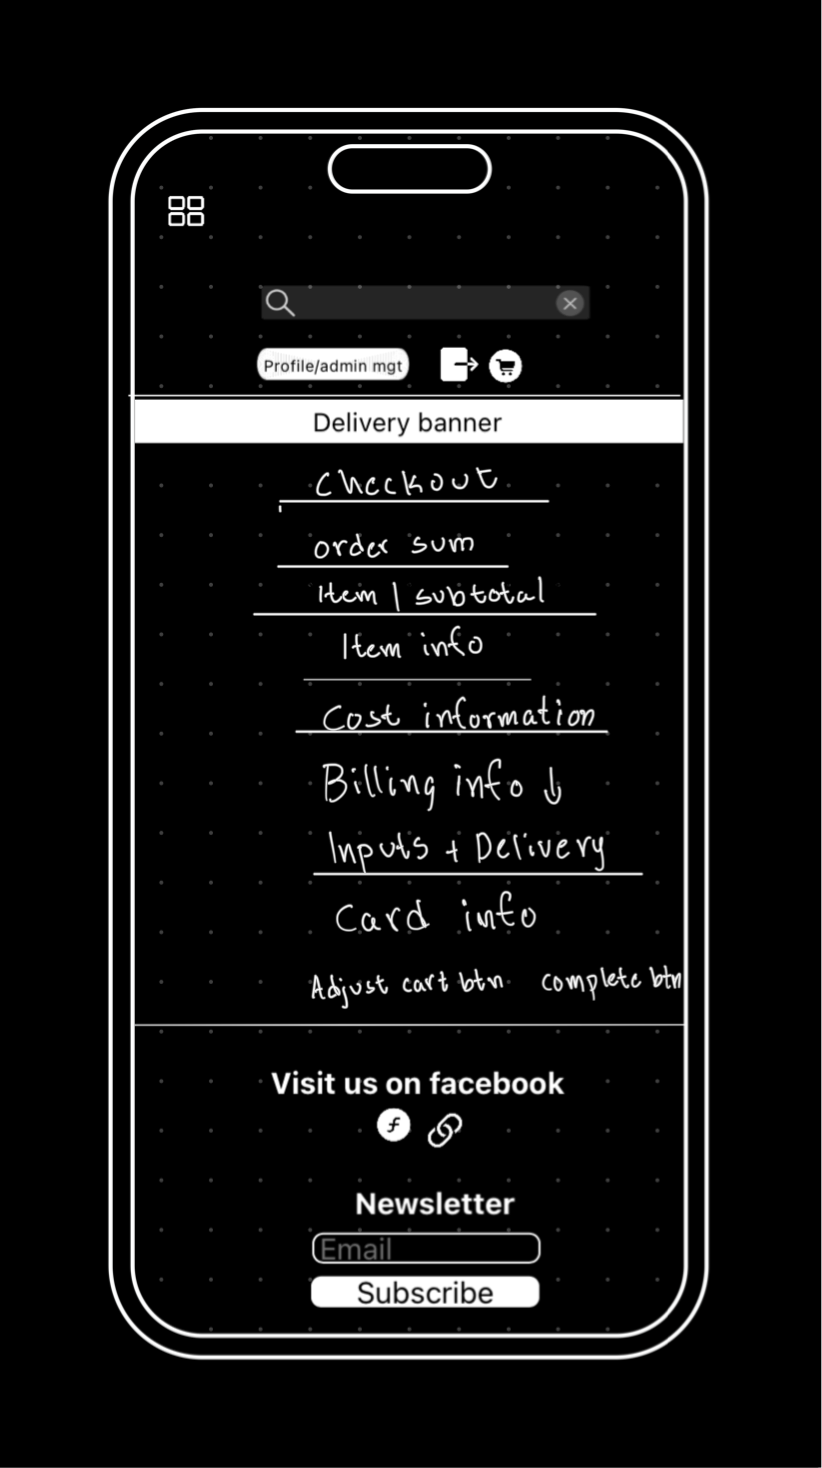 Profile/admin mgt
Delivery banner
Checkout
order sum
Item | subtotal
Item info
Cost information
Billing info ↓
Inputs + Delivery
Card info
Adjust cart btn complete btn
Visit us on facebook
f
Newsletter
Email
Subscribe